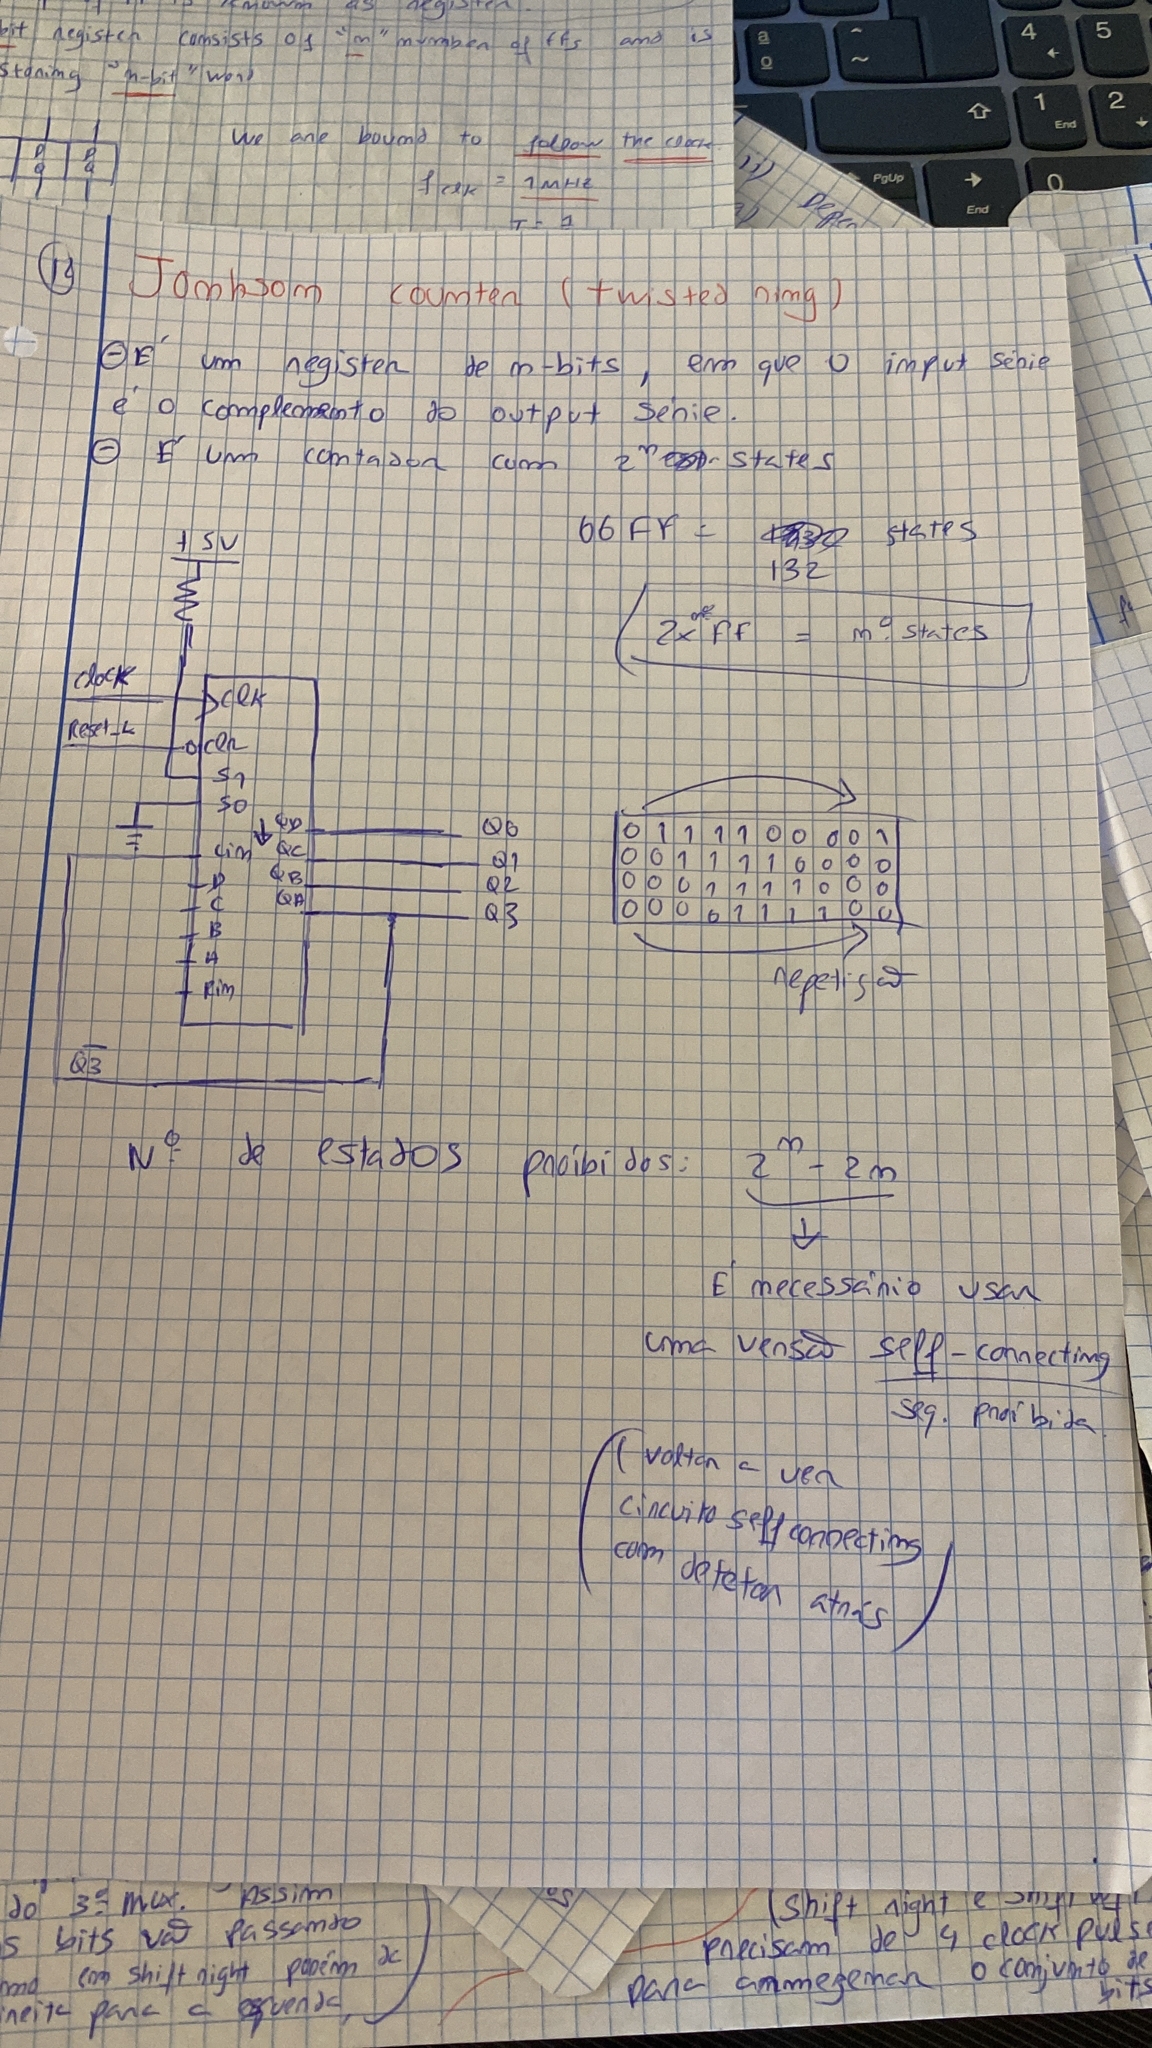 bit register consists of "n" number of FFs and is
storing "n-bit" word
We are bound to follow the clock
fclk = 1MHz
T = 1
D D
Q Q
a 4 5
º ~
1 2
End
PgUp
0
End
13 Johnson counter (twisted ring)
É um register de n-bits, em que o input série
é o complemento do output série.
É um contador com 2n states
66 FF = states
132
2x nº FF = nº states
+5V
clock
CLK
Reset_L
CLR
S1
S0
Lin
D
C
B
A
Rin
QD Q0
QC Q1
QB Q2
QA Q3
Q3
0 1 1 1 1 0 0 0 0 1
0 0 1 1 1 1 0 0 0 0
0 0 0 1 1 1 1 0 0 0
0 0 0 0 1 1 1 1 0 0
repetição
Nº de estados proibidos: 2^n - 2n
É necessário usar
uma versão self-connecting
seq. proibida
(voltar a ver
circuito self connecting
com detetar atrás)
do 3º mux. Assim
s bits vão passando
em shift right porém
para a esquerda
(shift right e shift
precisam de 4 clock pulse
para armmegenar o conjunto de
bits